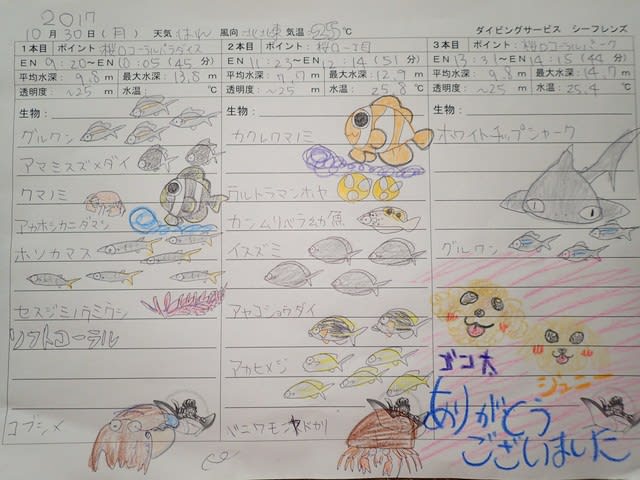 2017
10月30日(月) 天気 はれ 風向 北北東 気温 25℃ ダイビングサービス シーフレンズ
1本目 ポイント: 桜口コーラルパラダイス
EN 9:20~EN 10:05(45分)
平均水深: 9.8m 最大水深: 13.8m
透明度: ~25m 水温: ℃
生物:
グルクン
アマミスズメダイ
クマノミ
アカホシカニダマシ
ホソカマス
セスジミノウミウシ
ソフトコーラル
コブシメ
2本目 ポイント: 桜口一丁目
EN 11:23~EN 12:14(51分)
平均水深: 7.7m 最大水深: 12.9m
透明度: ~25m 水温: 25.8℃
生物:
カクレクマノミ
ウルトラマンホヤ
カンムリベラ幼魚
イスズミ
アヤコショウダイ
アカヒメジ
ベニワモンヤドカリ
3本目 ポイント: 桜口コーラルパーク
EN 13:31~EN 14:15(44分)
平均水深: 9.8m 最大水深: 14.7m
透明度: ~25m 水温: 25.4℃
生物:
ホワイトチップシャーク
グルクン
ジュニー
ありがとう
ございました